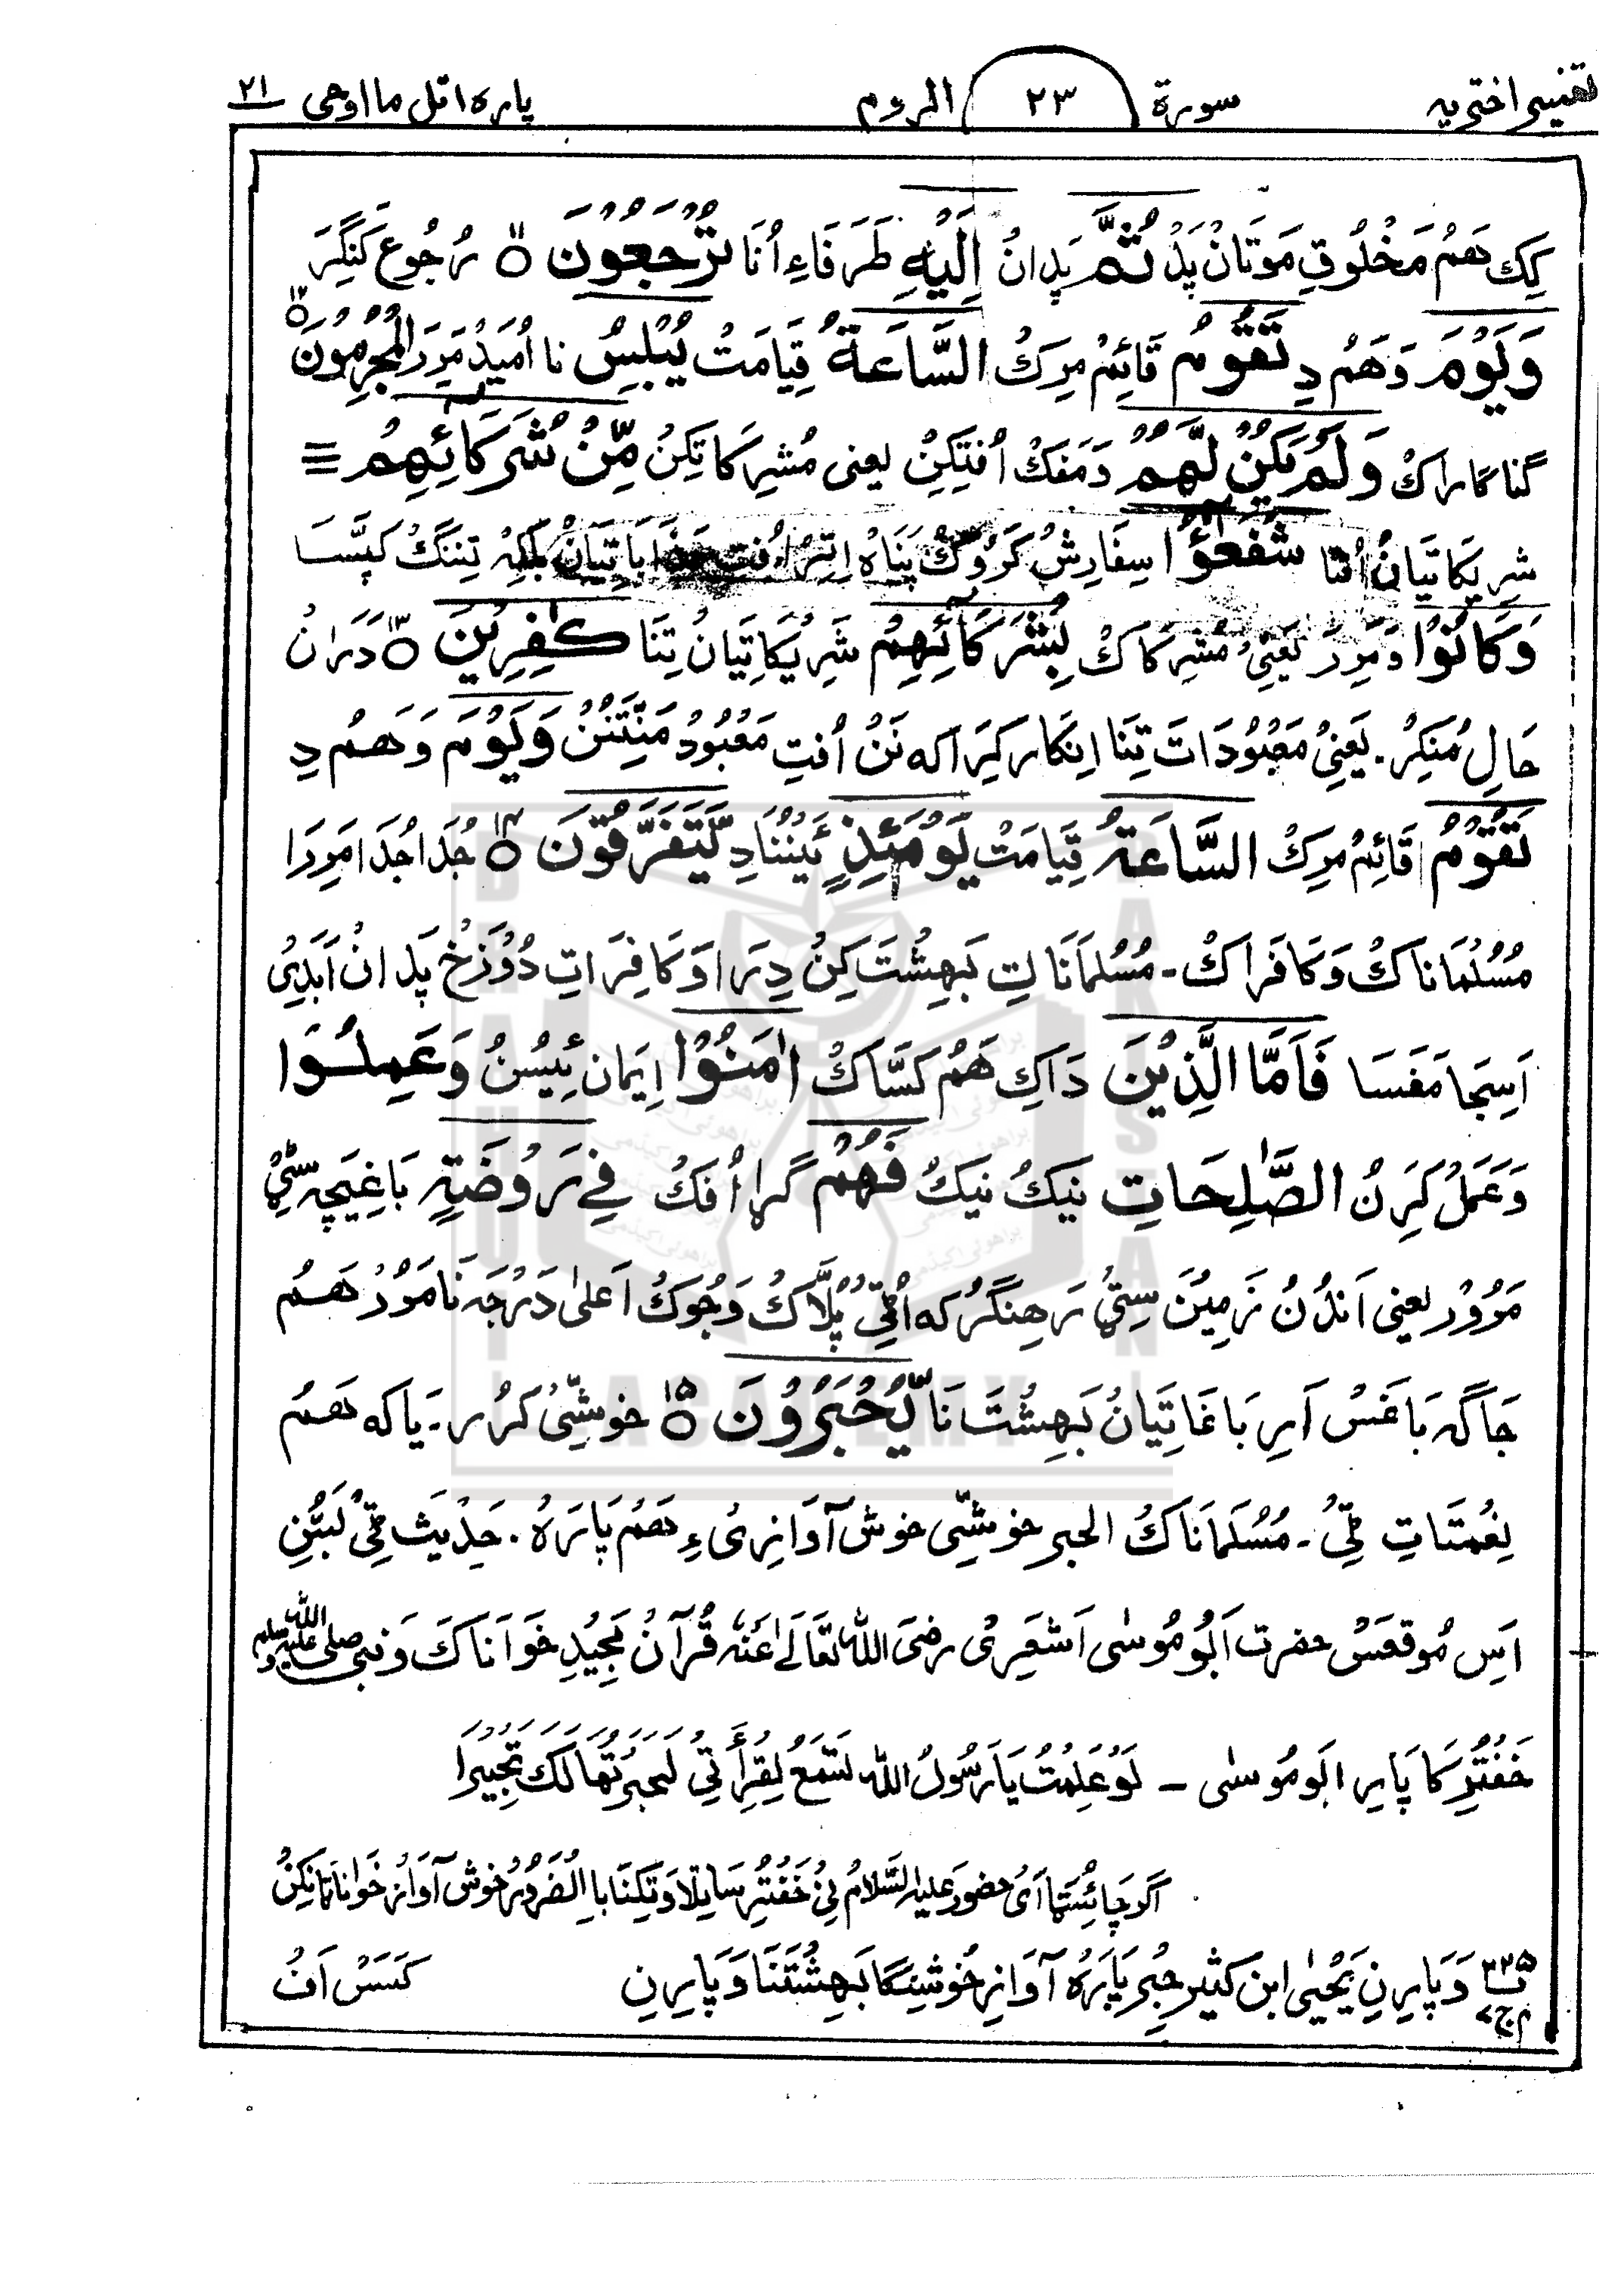 تفسیر اختریہ سورۃ ۲۳ الروم پارہ اتل ما اوحی ۲۱
کِك هَمُ مَخْلُوقِ مَوتَانُ پَدُ ثُمَّ پَدِانُ اِلَيْهِ طَرَفَاءِ اُنَا تُرْجَعُونَ ۝۱۱ رُجُوع كَنِگِرَ
وَيَوْمَ وَهَمُ دِ تَقُوْمُ قَائِمُ مِرِكُ السَّاعَةُ قِيَامَتُ يُبْلِسُ نا اُمَيْدُ مَرِرَ الْمُجْرِمُوْنَ ۝۱۲
گناگاراکُ وَلَمْ يَكُنْ لَّهُمْ دَمَفَكُ اُفْتِكِنُ يعنى مُشرِكَا تِكِنُ مِّنْ شُرَكَائِهِمْ
شرِيكَاتِيَانُ اُفتا شُفَعٰٓؤُا سِفَارِشُ كَرُوكُ پَنَاهُ بَلكِهُ تِننَكُ كَپَّسَا
وَكَانُوْا وَمَرِرَ يَعنِىُ مُشرِكَاكُ بِشُرَكَآئِهِمْ شَرِيكَاتِيَانُ تِنَا كٰفِرِيْنَ ۝۱۳ دَرَانُ
حَالِ مُنكِرُ. يَعنِىُ مَعبُودَاتَ تِنَا اِنكَار كَرِرَ اکہ نَنُ اُفتِ مَعبُودُ مَنتَنُنُ وَيَوْمَ وَهَمُ دِ
تَقُوْمُ قَائِمُ مِرِكُ السَّاعَةُ قِيَامَتُ يَوْمَئِذٍ ئَيننَا دِ يَّتَفَرَّقُوْنَ ۝۱۴ جُدَا جُدَا مَرِرَا
مُسُلمَاناكُ وَكَافَراكُ - مُسُلمَانَاتِ بَهِشتَ كِنُ دِرَا وَكَافِرَاتِ دُوزَخُ پَدِانُ اَبَدِىُ
اَسِجَا مَفَسَا فَاَمَّا الَّذِيْنَ دَاكِ هَمُ كَسَّاكُ اٰمَنُوْا اِيمَان ئيسُنُ وَعَمِلُوا
وَعَمَلُ كَرِنُ الصّٰلِحَاتِ نيكُ نيكُ فَهُمْ گرا اُفكُ فِیْ رَوْضَةٍ بَاغِيچہ سٹی
مَرُورُ يعنى اَندُنُ زَمِينَ سٹی رَهِنگَرُ کہ اُٹی پُلَّاكُ وَجُوكُ اَعلىٰ دَرجَہ نَا مَوُرُ هَمُ
جَاگہ بَاغَسُ اَرِ بَاغَاتِيَانُ بَهِشتَ نَا يُّحْبَرُوْنَ ۝۱۵ خوشّىُ كَرُر - يَا کہ هَمُ
نِعمتَاتِ ٹی - مُسُلمَاناكُ الحبر خوشّى خوش آوَازِىُ ءِ هَمُ پَارَهُ . حَدِيث ٹی بَتُّنِ
اَسِ مُوقعَسُ حضرت اَبُو مُوسٰى اَشعَرِىُ رضىَ اللهُ تَعَالٰى عَنهُ قُرآنُ مجِيُدِ خوَانَاكَ وَنبى صلى الله عليه وسلم
خَفُترِكَا پَارِ ابومُوسٰى ــ لَوْ عَلِمْتُ يَارَسُولُ اللهِ تَسْمَعُ لِقِرَأَتِىُ لَحَبَّرْتُهَا لَكَ تَحْبِيْرًا
اگر چَائِسُتَمَا اَىُ حضورعَلَيهِ السَّلامُ نِىُ خَفُترِسَا تِلاوَتكِنَا بالضَرُورُ خوش آوَازُ خوَانَاتَا نكِنُ
ف ۳۳۵ م ج ۷ وَپَارِنِ يَحيٰى ابن كثير حِبِر پَارَهُ آوَازِ خُوشِيگَا بَهِشُتَنَا وَپَارِنِ كَسَسُ اَفُ